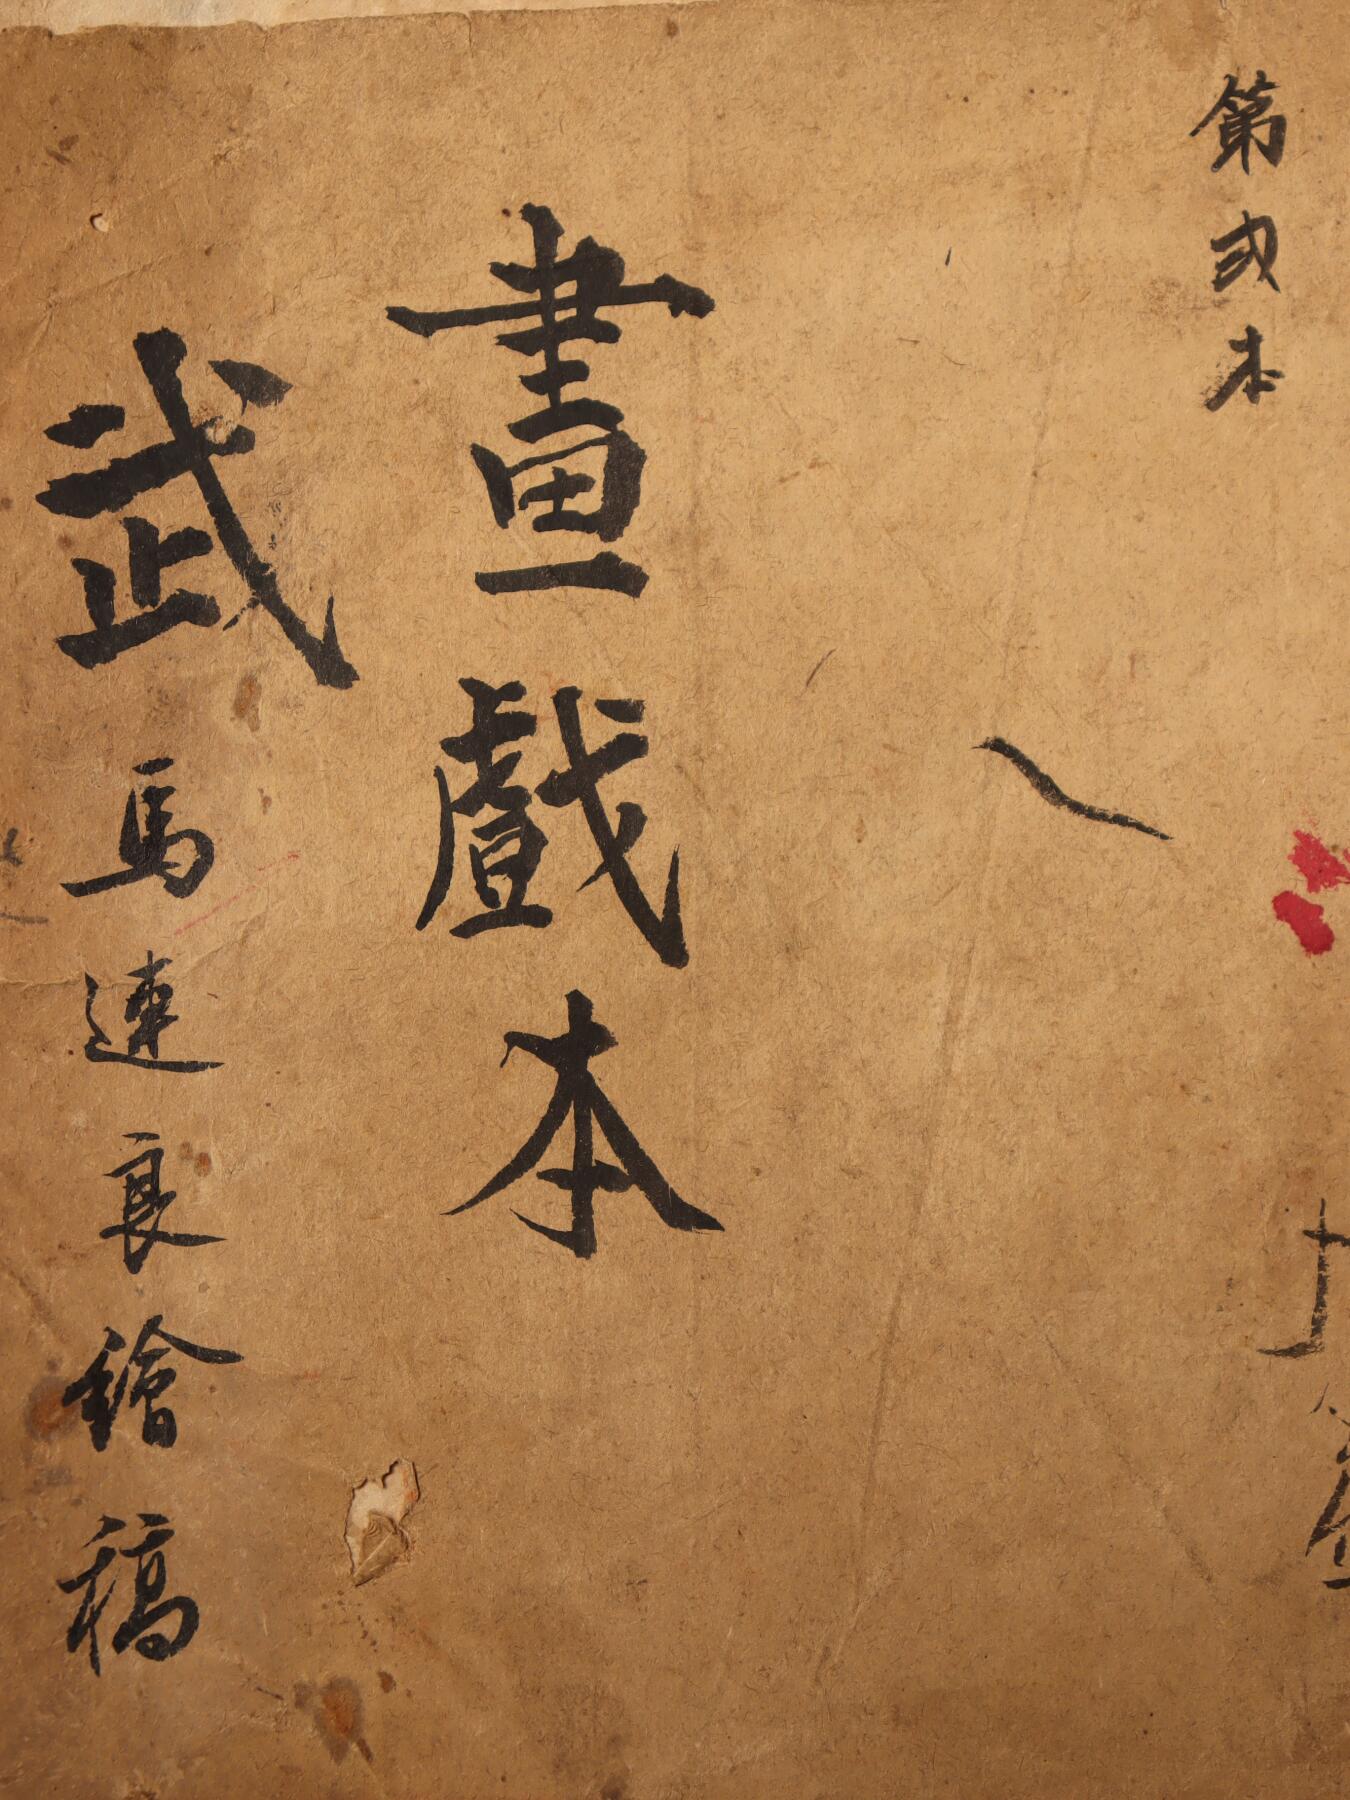 第弍本
畫戲本
武
馬連良繪稿